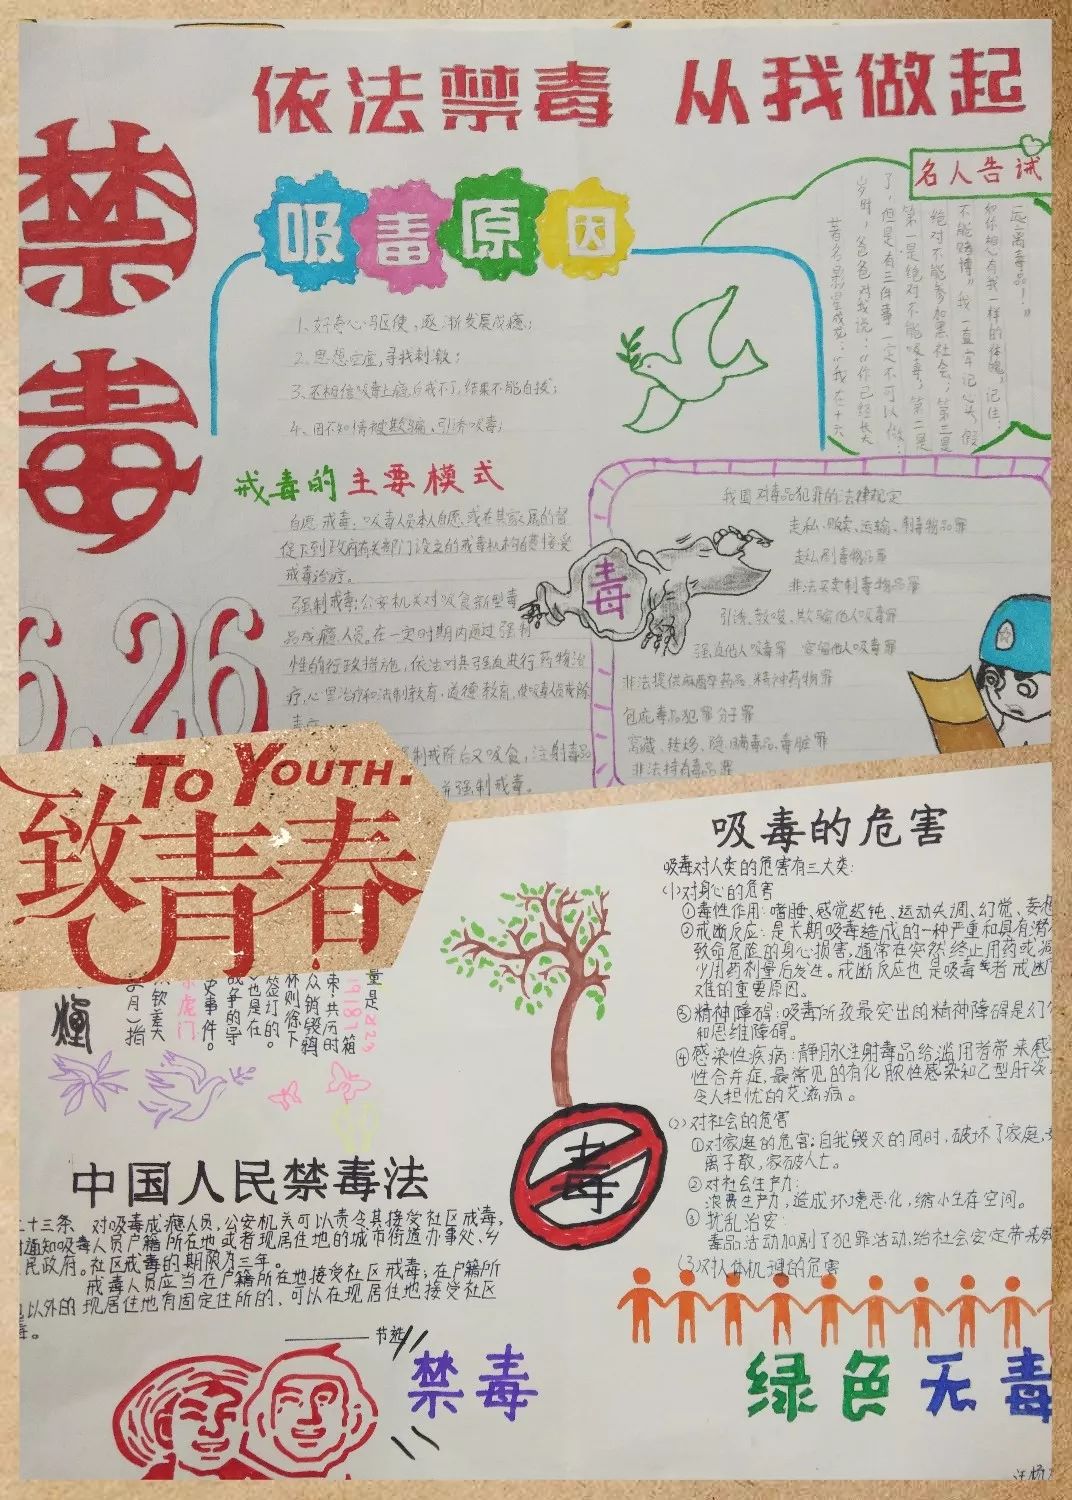 依法禁毒 从我做起
禁毒
6.26
吸毒原因
1、好奇心驱使，逐渐发展成瘾；
2、思想空虚，寻找刺激；
3、不相信吸毒上瘾后戒不了，结果不能自拔；
4、因不知情被欺骗、引诱吸毒；
名人告诫
远离毒品！”
和你想必有我一样的体魄，记住：
不能赌博”我一直牢记心头，假
绝对不能参加黑社会；第三是
第一是绝对不能吸毒，第二是
了，但是有三件事一定不可以做：
岁时，爸爸对我说：“你已经长大
著名影星成龙：“我在十六
戒毒的主要模式
自愿戒毒：吸毒人员本人自愿或在其家属的督
促下到政府有关部门设立的戒毒机构自愿接受
戒毒治疗。
强制戒毒：公安机关对吸食新型毒
品成瘾人员，在一定时期内通过强制
性的行政措施，依法对其强迫进行药物治
疗、心里治疗和法制教育、道德教育，使吸毒人员戒除
制戒除后又吸食、注射毒品
并强制戒毒。
毒
我国对毒品犯罪的法律规定
走私、贩卖、运输、制毒物品罪
走私制毒物品罪
非法买卖制毒物品罪
引诱、教唆、欺骗他人吸毒罪
强迫他人吸毒罪 容留他人吸毒罪
非法提供麻醉药品、精神药物罪
包庇毒品犯罪分子罪
窝藏、转移、隐瞒毒品、毒脏罪
非法持有毒品罪
To Youth.
致青春
量是
束，共历时
众销毁鸦
怀则徐下
签订的。
也是在
战争的导
史事件。
虎门
钦差大
月）指
箱
烟
中国人民禁毒法
十三条 对吸毒成瘾人员，公安机关可以责令其接受社区戒毒，
通知吸毒人员户籍所在地或者现居住地的城市街道办事处、乡
民政府。社区戒毒的期限为三年。
戒毒人员应当在户籍所在地接受社区戒毒；在户籍所
以外的现居住地有固定住所的，可以在现居住地接受社区
毒。
——节选
禁毒
毒
吸毒的危害
吸毒对人类的危害有三大类：
(1)对身心的危害
①毒性作用：嗜睡、感觉迟钝、运动失调、幻觉、妄想
②戒断反应：是长期吸毒造成的一种严重和具有潜在
致命危险的身心损害，通常在突然终止用药或减
少用药剂量后发生。戒断反应也是吸毒者戒断
难的重要原因。
③精神障碍：吸毒所致最突出的精神障碍是幻觉
和思维障碍。
④感染性疾病：静脉注射毒品给滥用者带来感
性合并症，最常见的有化脓性感染和乙型肝炎
令人担忧的艾滋病。
(2)对社会的危害
①对家庭的危害：自我毁灭的同时，破坏了家庭、
离子散，家破人亡。
②对社会生产力：
浪费生产力，造成环境恶化，缩小生存空间。
③扰乱治安：
毒品活动加剧了犯罪活动，给社会安定带来
(3)对人体机理的危害
绿色无毒